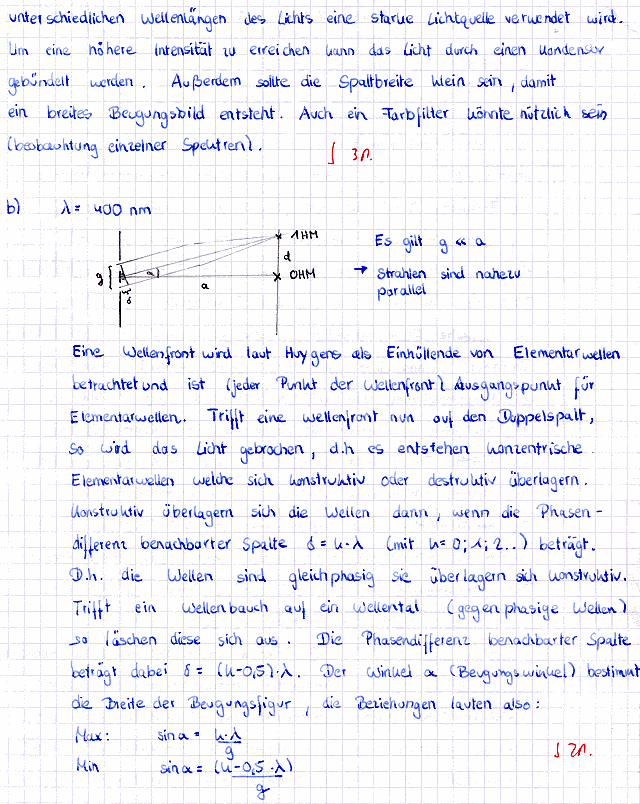 unterschiedlichen Wellenlängen des Lichts eine starke Lichtquelle verwendet wird.
Um eine höhere Intensität zu erreichen kann das Licht durch einen Kondensor
gebündelt werden. Außerdem sollte die Spaltbreite klein sein, damit
ein breites Beugungsbild entsteht. Auch ein Farbfilter könnte nützlich sein
(beobachtung einzelner Spektren).
b) λ = 400 nm
1HM
d
0HM
g
α
a
δ
Es gilt g << a
→ Strahlen sind nahezu
parallel
Eine Wellenfront wird laut Huygens als Einhüllende von Elementarwellen
betrachtet und ist (jeder Punkt der Wellenfront) Ausgangspunkt für
Elementarwellen. Trifft eine Wellenfront nun auf den Doppelspalt,
so wird das Licht gebrochen, d.h es entstehen konzentrische
Elementarwellen welche sich konstruktiv oder destruktiv überlagern.
Konstruktiv überlagern sich die Wellen dann, wenn die Phasen-
differenz benachbarter Spalte δ = k·λ (mit k = 0; 1; 2..) beträgt.
D.h. die Wellen sind gleichphasig sie überlagern sich konstruktiv.
Trifft ein Wellenbauch auf ein Wellental (gegenphasige Wellen)
so löschen diese sich aus. Die Phasendifferenz benachbarter Spalte
beträgt dabei δ = (k-0,5)·λ. Der Winkel α (Beugungswinkel) bestimmt
die Breite der Beugungsfigur, die Beziehungen lauten also:
Max: sin α = k·λ / g
Min sin α = (k-0,5·λ) / g